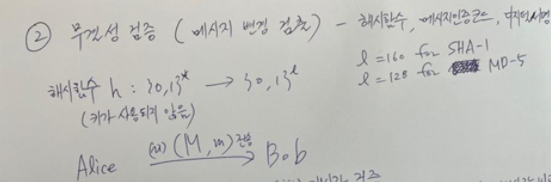 ② 무결성 검증 (메시지 변경 검출) - 해시함수, 메시지인증코드, 디지털서명
l = 160 for SHA-1
l = 128 for MD-5
해시함수 h : {0,1}* → {0,1}^l
(키가 사용되지 않음)
Alice (M, m) 전송 → Bob